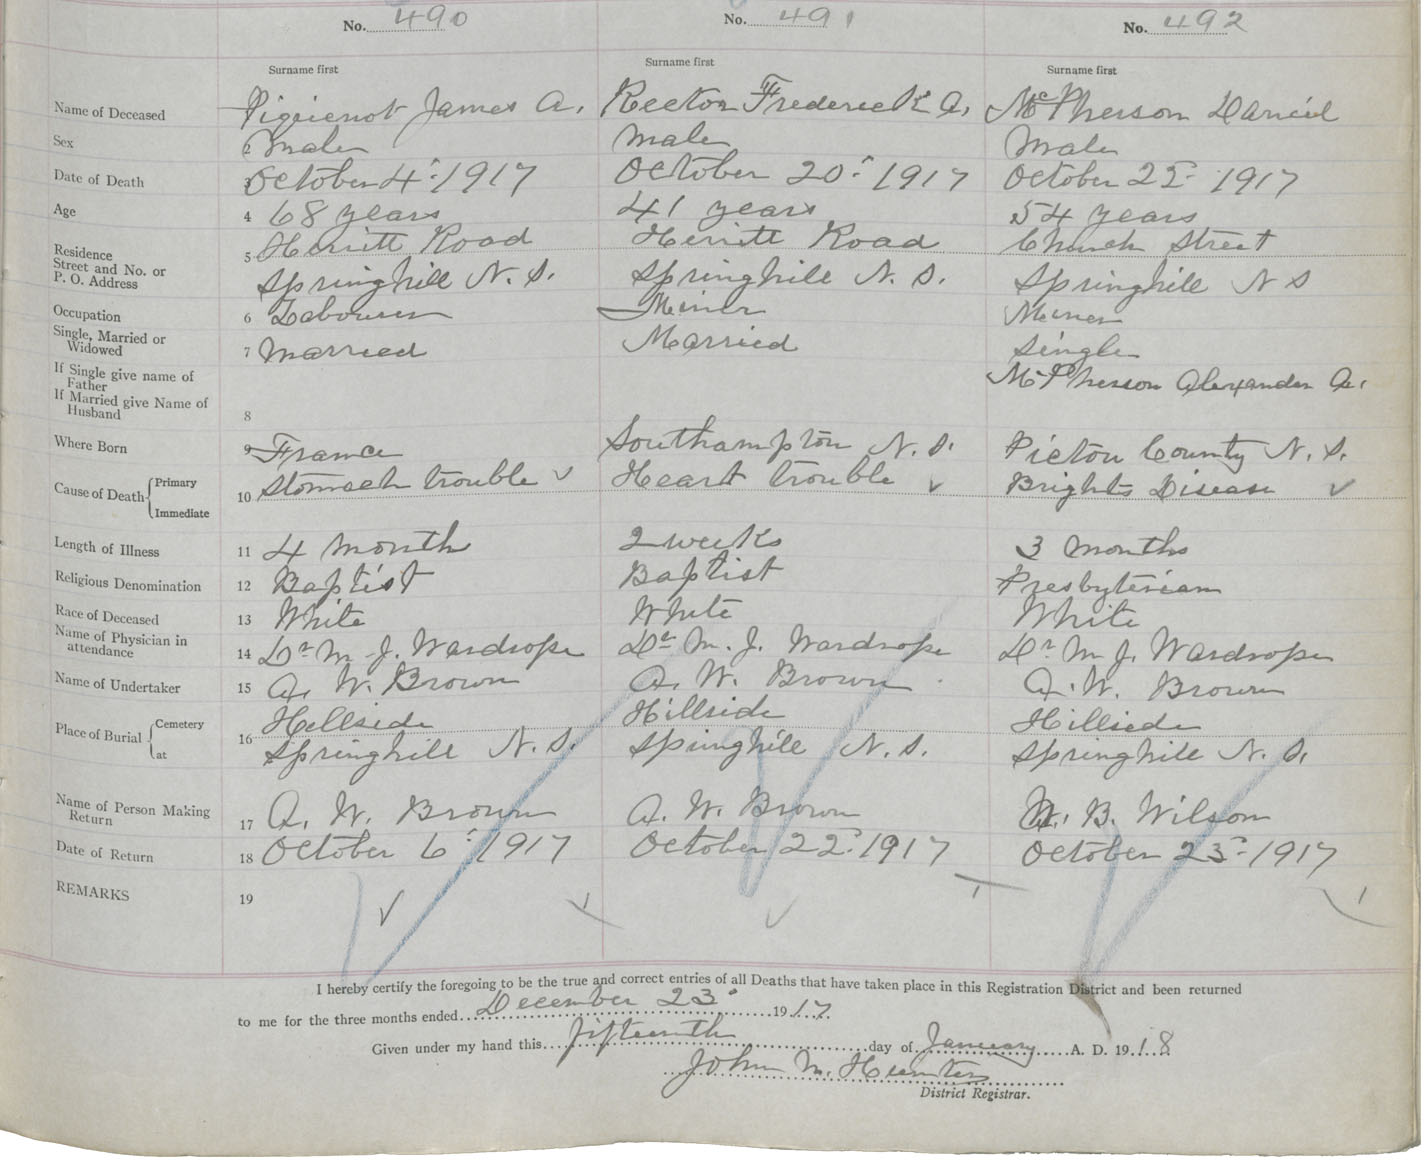 No. 490 No. 491 No. 492
Surname first Surname first Surname first
Name of Deceased Pigienot James A. Rector Frederick A. McPherson Daniel
Sex 2 Male Male Male
Date of Death 3 October 4" 1917 October 20" 1917 October 22" 1917
Age 4 68 years 41 years 54 years
Residence Street and No. or P. O. Address 5 Herritt Road Herritt Road Church Street
Springhill N. S. Springhill N. S. Springhill N S
Occupation 6 Labourer Miner Miner
Single, Married or Widowed 7 Married Married Single
If Single give name of Father McPherson Alexander A.
If Married give Name of Husband 8
Where Born 9 France Southampton N. S. Pictou County N. S.
Cause of Death Primary Immediate 10 Stomach trouble Heart trouble Brights Disease
Length of Illness 11 4 month 2 weeks 3 months
Religious Denomination 12 Baptist Baptist Presbyterian
Race of Deceased 13 White White White
Name of Physician in attendance 14 Dr M. J. Wardrope Dr M. J. Wardrope Dr M J. Wardrope
Name of Undertaker 15 A. W. Brown A. W. Brown A. W. Brown
Place of Burial Cemetery at 16 Hillside Hillside Hillside
Springhill N. S. Springhill N. S. Springhill N. S.
Name of Person Making Return 17 A. W. Brown A. W. Brown B. Wilson
Date of Return 18 October 6" 1917 October 22" 1917 October 23" 1917
REMARKS 19
I hereby certify the foregoing to be the true and correct entries of all Deaths that have taken place in this Registration District and been returned
to me for the three months ended December 23" 1917
Given under my hand this fifteenth day of January A. D. 1918
John M. Hunter
District Registrar.